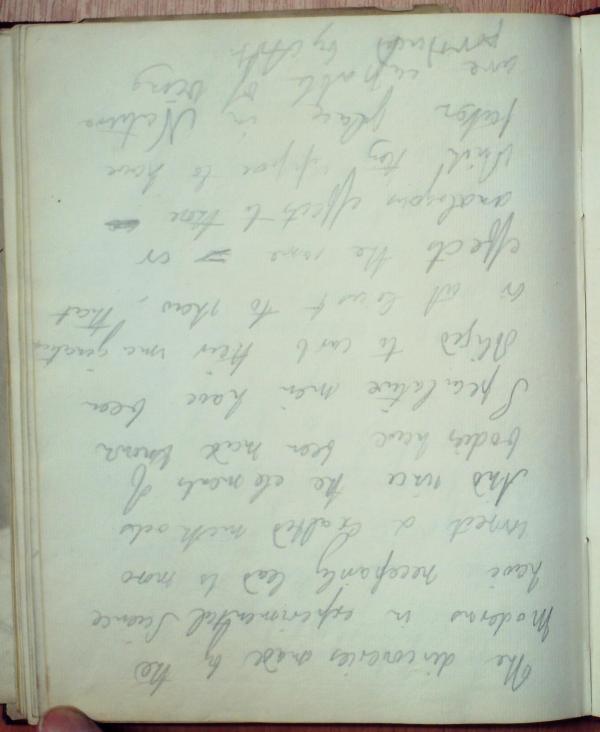 The discoveries made by the
Moderns in experimental Science
have necessarily lead to more
& exalted methods
And since the elements of
bodies have been made known
Speculative men have been
obliged to curb their imaginations
or at least to shew, that
effects the same or
analogous effects to those
which they suppose to have
taken place in Nature
are capable of being
produced by Art.